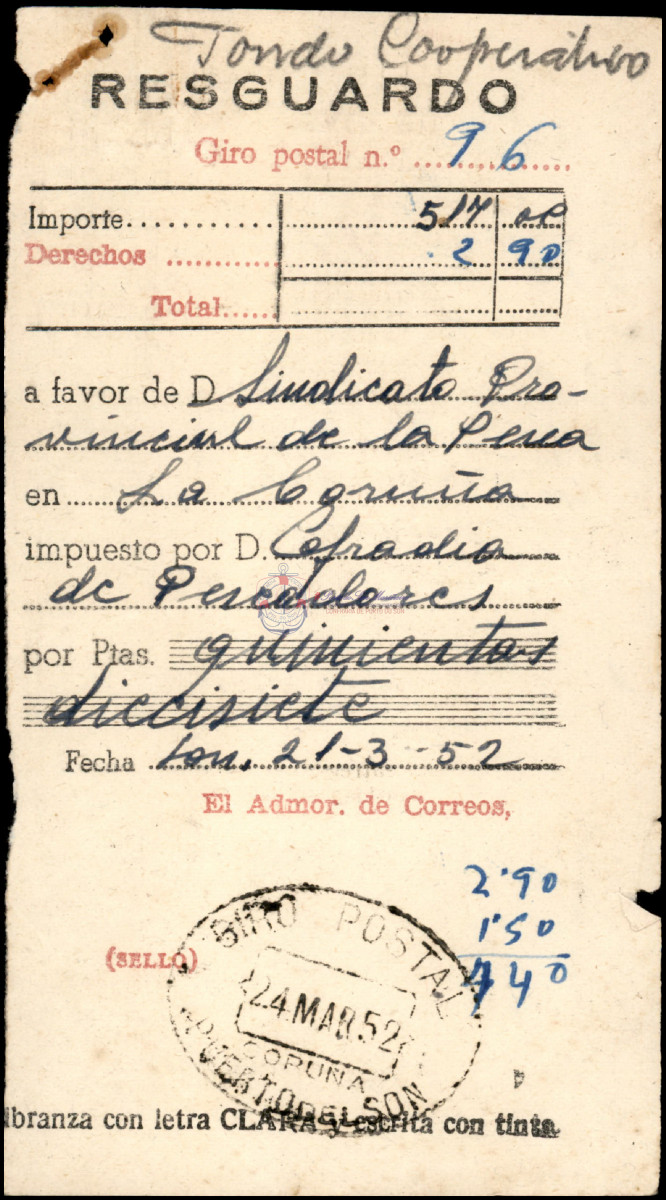 Fondo Cooperativo
RESGUARDO
Giro postal n.º 96
Importe 517 00
Derechos 2 90
Total
a favor de D. Sindicato Pro-
vincial de la Pesca
en La Coruña
impuesto por D. Cofradia
de Pescadores
por Ptas. quinientas
diecisiete
Fecha Son, 21-3-52
El Admor. de Correos,
2'90
1'50
4 40
(SELLO)
GIRO POSTAL
24 MAR 52
CORUÑA
PUERTO DEL SON
ibranza con letra CLARA y escrita con tinta